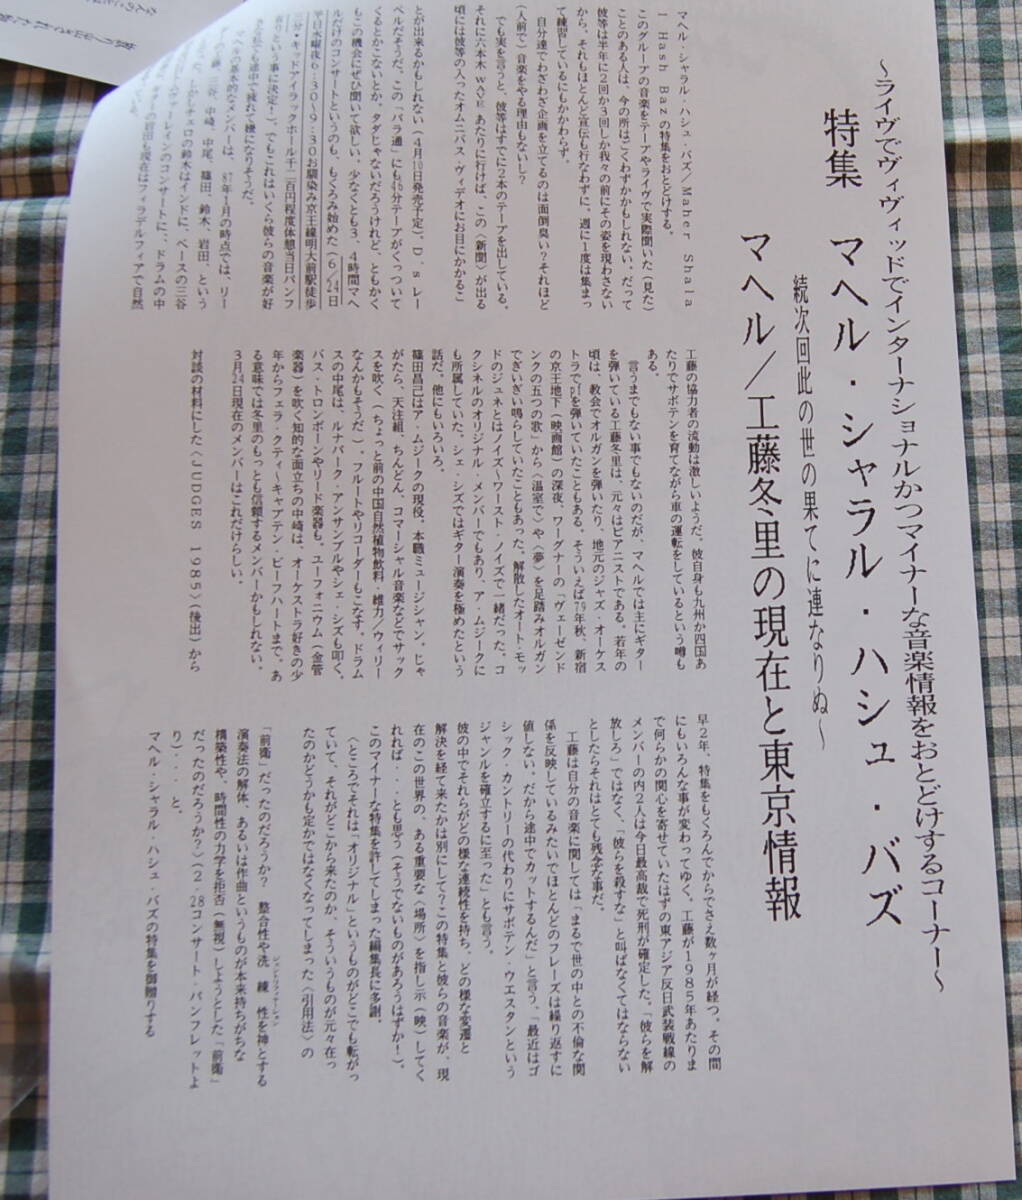 〜ライヴでヴィヴィッドでインターナショナルかつマイナーな音楽情報をおとどけするコーナー〜
特集 マヘル・シャラル・ハシュ・バズ
続次回此の世の果てに連なりぬ〜
マヘル／工藤冬里の現在と東京情報
マヘル・シャラル・ハシュ・バズ／Maher Shala
l Hash Bazの特集をおとどけする。
このグループの音楽をテープやライヴで実際聞いた（見た）
ことのある人は、今の所はごくわずかかもしれない。だって
彼等は半年に2回か3回しか我々の前にその姿を現わさない
から、それもほとんど宣伝も行なわずに。週に1度は集まっ
て練習しているにもかかわらず。
自分達でわざわざ企画を立てるのは面倒臭い？それほど
（人前で）音楽をやる理由もないし？
でも実を言うと、彼等はすでに2本のテープを出している。
それに六本木WAVEあたりに行けば、この〈新聞〉が出る
頃には彼等の入ったオムニバス・ヴィデオにお目にかかるこ
とが出来るかもしれない（4月10日発売予定）。D.sレー
ベルだそうだ。この〝バラ通〟にも46分テープがくっついて
くるとかこないとか。タダじゃないだろうけれど、ともかく
もこの機会にぜひ聞いて欲しい。少なくとも3、4時間マヘ
ルだけのコンサートというのも、もくろみ始めた（6／24日
平日水曜夜6:30〜9:30お馴染み京王線明大前駅徒歩
三分・キッドアイラックホール千二百円程度休憩当日パンフ
有りという事に決定！）。でもこれはいくら彼らの音楽が好
きな私でも途中で疲れて嫌になりそうだ。
マヘルの基本的なメンバーは、87年1月の時点では、リー
三谷、中崎、中尾、篠田、鈴木、岩田、という
しかしチェロの鈴木はインドに、ベースの三谷
レインのコンサートに、ドラムの中
の岩田も現在はフィラデルフィアで自然
工藤の協力者の流動は激しいようだ。彼自身も九州か四国あ
たりでサボテンを育てながら車の運転をしているという噂も
ある。
言うまでもない事でもないのだが、マヘルでは主にギター
を弾いている工藤冬里は、元々はピアニストである。若年の
頃は、教会でオルガンを弾いたり、地元のジャズ・オーケス
トラでpを弾いていたこともある。そういえば79年秋、新宿
の京王地下（映画館）の深夜、ワーグナーの「ヴェーゼンド
ンクの五つの歌」から〈温室で〉や〈夢〉を足踏みオルガン
でぎいぎい鳴らしていたこともあった。解散したオート・モッ
ドのジュネとはノイズ〜ワースト・ノイズで一緒だった。コ
クシネルのオリジナル・メンバーでもあり、ア・ムジークに
も所属していた。シェ・シズではギター演奏を極めたという
話だ。他にもいろいろ。
篠田昌已はア・ムジークの現役。本職ミュージシャン。じゃ
がたら、天注組、ちんどん、コマーシャル音楽などでサック
スを吹く（ちょっと前の中国自然植物飲料・維力／ウィリー
なんかもそうだ）。フルートやリコーダーもこなす。ドラム
スの中尾は、ルナパーク・アンサンブルやシェ・シズも叩く。
バス・トロンボーンやリード楽器も。ユーフォニウム（金管
楽器）を吹く知的な面立ちの中崎は、オーケストラ好きの少
年からフェラ・クティ〜キャプテン・ビーフハートまで。あ
る意味では冬里のもっとも信頼するメンバーかもしれない。
3月24日現在のメンバーはこれだけらしい。
対談の材料にした〈JUDGES 1985〉（後出）から
早2年、特集をもくろんでからでさえ数ヶ月が経つ。その間
にもいろんな事が変わってゆく。工藤が1985年あたりま
で何らかの関心を寄せていたはずの東アジア反日武装戦線の
メンバーの内2人は今日最高裁で死刑が確定した。「彼らを解
放しろ」ではなく、「彼らを殺すな」と叫ばなくてはならない
としたらそれはとても残念な事だ。
工藤は自分の音楽に関しては「まるで世の中との不倫な関
係を反映しているみたいでほとんどのフレーズは繰り返すに
値しない。だから途中でカットするんだ」と言う、「最近はゴ
シック・カントリーの代わりにサボテン・ウエスタンという
ジャンルを確立するに至った」とも言う。
彼の中でそれらがどの様な連続性を持ち、どの様な変遷と
解決を経て来たかは別にして？この特集と彼らの音楽が、現
在のこの世界の、ある重要な〈場所〉を指し示（映）してく
れれば・・とも思う（そうでないものがあろうはずか！）。
このマイナーな特集を許してしまった編集長に多謝。
〈ところでそれは「オリジナル」というものがどこでも転がっ
ていて、それがどこから来たのか、そういうものが元々在っ
たのかどうかも定かではなくなってしまった〈引用法〉の
「前衛」だったのだろうか？ 整合性や洗練性を神とする
演奏法の解体、あるいは作曲というものが本来持ちがちな
構築性や、時間性の力学を拒否（無視）しようとした「前衛」
だったのだろうか？〉（2・28コンサート・パンフレットよ
り）・・・と。
マヘル・シャラル・ハシュ・バズの特集を御贈りする